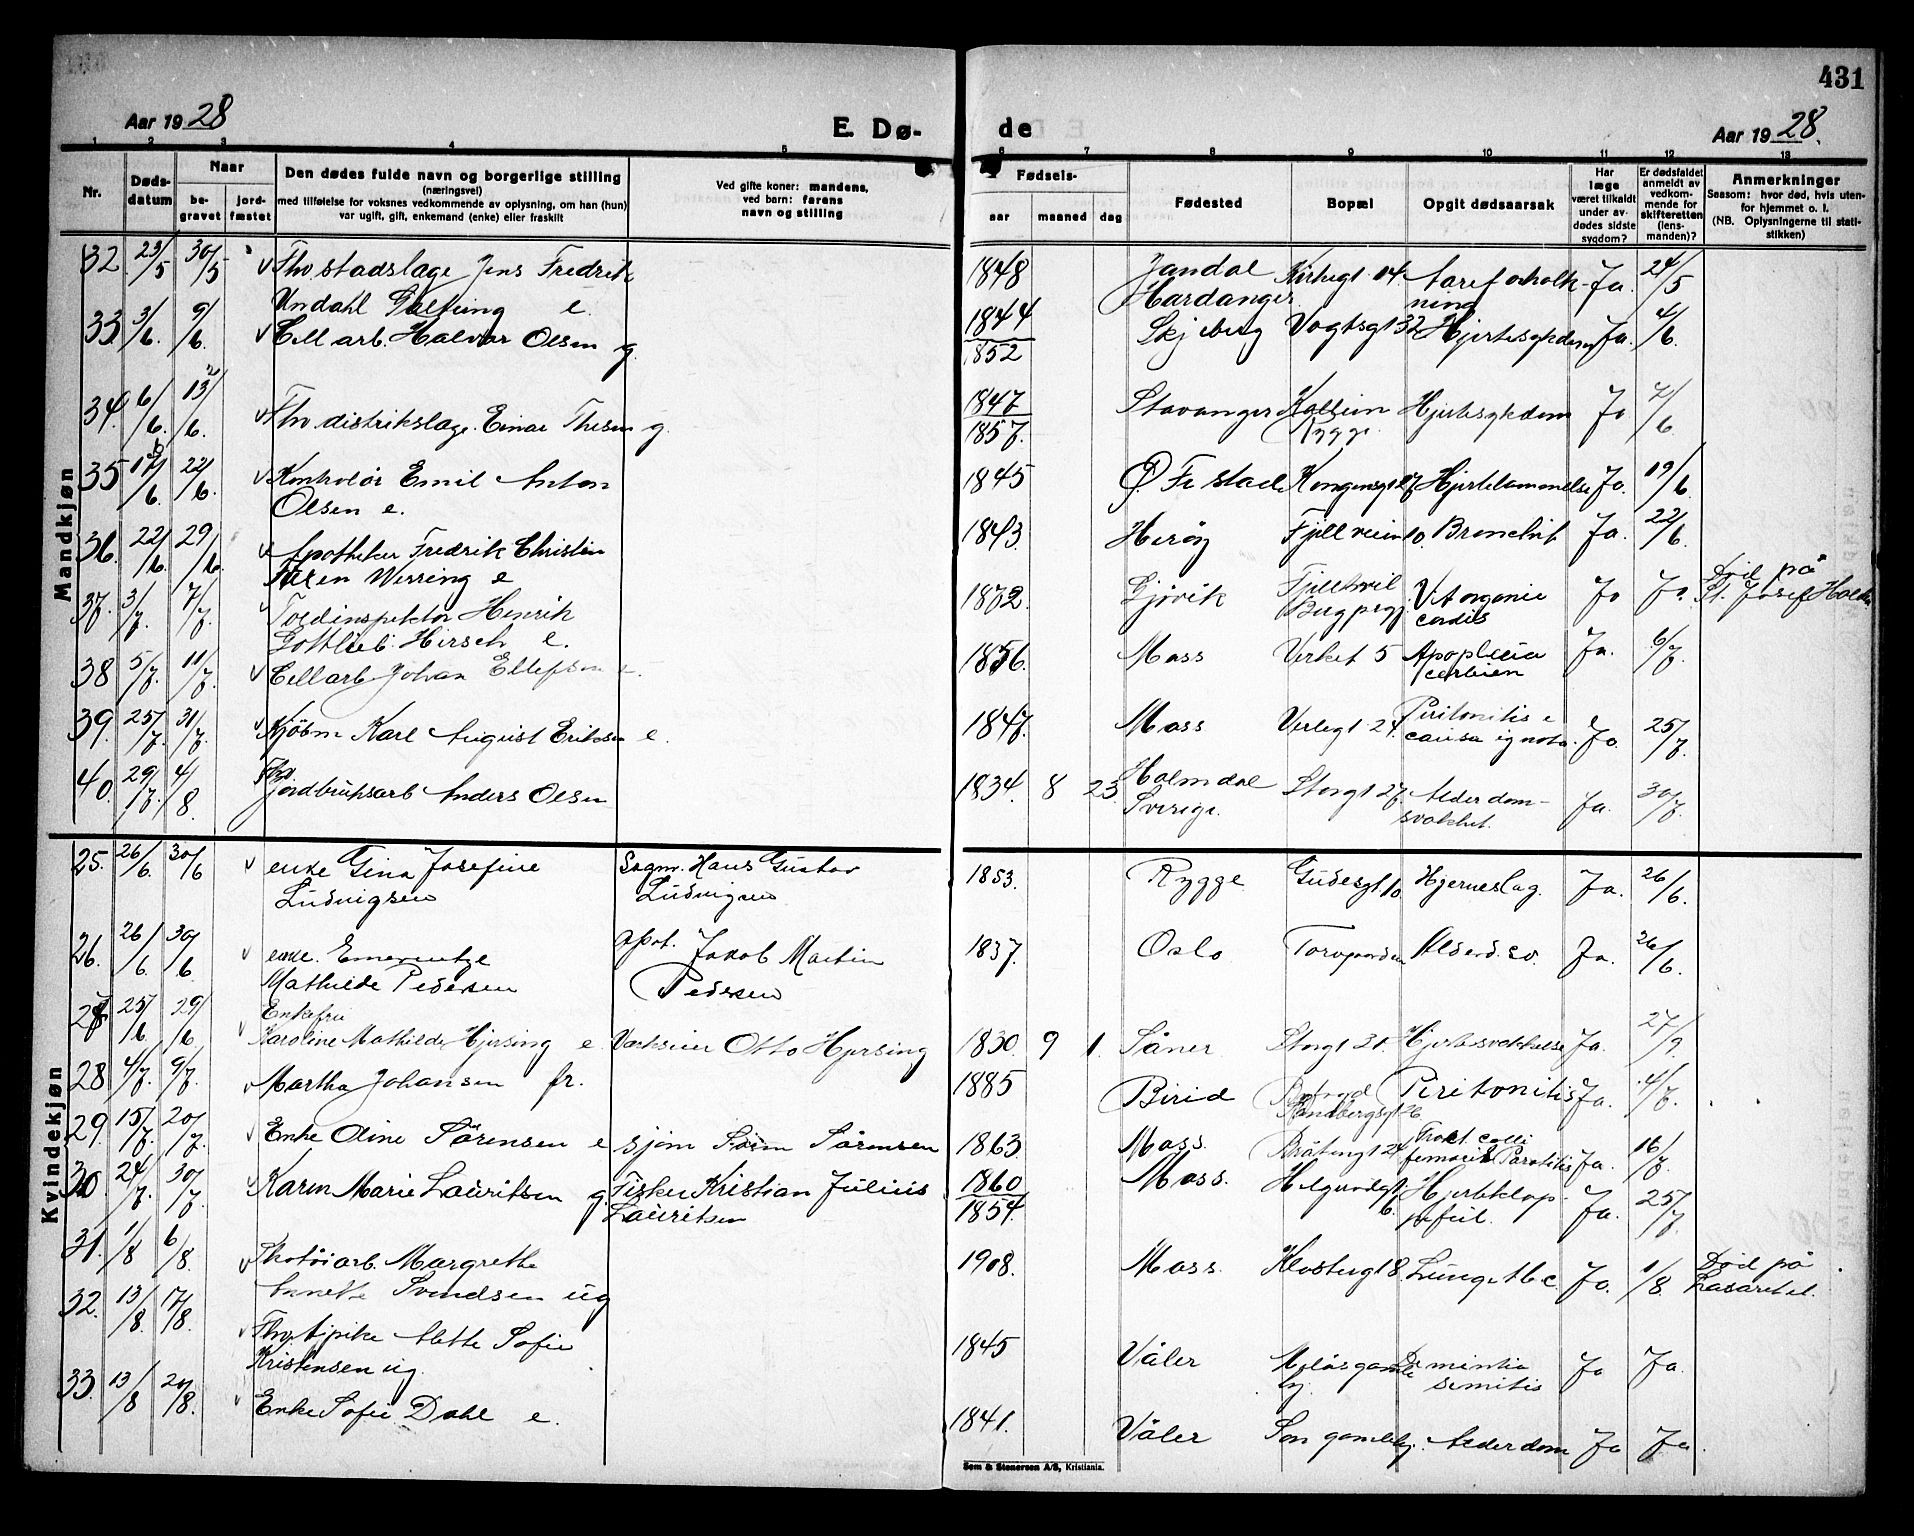 431
Aar 1928
E. Dø-
de
Aar 1928.
1 2 3 4 5 6 7 8 9 10 11 12 13
Nr.
Døds-
datum
Naar
be-
gravet
jord-
fæstet
Den dødes fulde navn og borgerlige stilling
(næringsvei)
med tilføielse for voksnes vedkommende av oplysning, om han (hun)
var ugift, gift, enkemand (enke) eller fraskilt
Ved gifte koner: mandens,
ved barn: farens
navn og stilling
Fødsels-
aar maaned dag
Fødested
Bopæl
Opgit dødsaarsak
Har
læge
været tilkaldt
under av-
dødes sidste
sygdom?
Er dødsfaldet
anmeldt av
vedkom-
mende for
skifteretten
(lens-
manden)?
Anmerkninger
Saasom: hvor død, hvis uten-
for hjemmet o. l.
(NB. Oplysningerne til stati-
stikken)
Mandkjøn
32 23/5 30/5 Fhv stadslæge Jens Fredrik 1848 Jondal Kirkegt 14. Ja. 24/5
Undahl e. Hardanger
33 3/6. 9/6. Cell arb. Halvor Olsen g. 1844 Skjeberg Vogtsgt 32 Hjertesykdom Ja. 4/6.
1852
34. 6/6. 13/6. Fhv distrikslæge. Einar g. 1847 Stavanger Hjertesykdom Ja 7/6
1857. Rygge.
35 22/6. Kontrolør Emil Anton 1845 Ø. Fr stad Kongensgt 27 Hjertelammelse Ja. 19/6.
Olsen e.
36. 22/6. 29/6. Apotheker Fredrik Christin 1843. Herøy Fjellveien 10. Bronchit Ja. 22/6.
Werring e
37. 3/7. 7/7. Toldinspektør Henrik 1872. Gjøvik Vit organic Ja Ja. Død på
Gottlieb. Hirsch e. cordis St. Josef
38 5/7. 11/7. Cellarb Johan Ellefsen e. 1856. Moss Verket 5 Apoplexia Ja. 6/7.
39. 25/7. 31/7. Kjøbm Karl August Eriksen e. 1847. Moss. Peritonitis e Ja. 25/7.
causa ignota.
40. 29/7. 4/8. Fhv. 1834. 8 23. Holmdal Storgt 27. Alderdom- Ja. 30/7.
Jordbruksarb Anders Olsen Sverige. svakhet.
Kvindekjøn
25. 26/6. 30/6 enke Gina Josefine Sagm. Hans Gustav 1853. Rygge. Gudesgt 10. Hjerneslag. Ja. 26/6.
Ludvigsen Ludvigsen
26. 26/6. 30/6 enke. Emerentze Jakob Martin 1837. Oslo Ja. 26/6.
Mathilde Pedersen Pedersen
27 25/6 29/6 Enkefru
Karoline Mathilde Hjersing e. Otto Hjersing 1830. 9 1. Såner Storgt 31. Hjertesvekkelse Ja. 27/7.
28 4/7. 9/7. Martha Johansen fr. 1885 Birid Peritonitis Ja. 4/7.
29. 15/7. 20/7. Enke Oline Sørensen e sjøm Sørensen 1863. Moss. collі Ja. 16/7.
femoris Parotitis
30 24/7. 30/7. Karen Marie Lauritsen g. Fisker Kristian Julius 1860 Moss. Hjerteklap- Ja. 25/7.
Lauritsen 1854. pefeil.
31. 1/8 6/8. Margrethe 1908. Moss. Klostergt 8. Lunge tbc. Ja. 1/8. Død på
Annette Svendsen ug Lasaretet.
32. 13/8. 17/8. Fhv. Apike Mette Sofie 1845 Våler Dementia Ja Ja.
Kristensen ug.
33. 13/8 20/8. Enke Sofie Dahl e. 1841. Våler Son gamlehj. Alderdom Ja Ja.
Sem & Stenersen A/S, Kristiania.